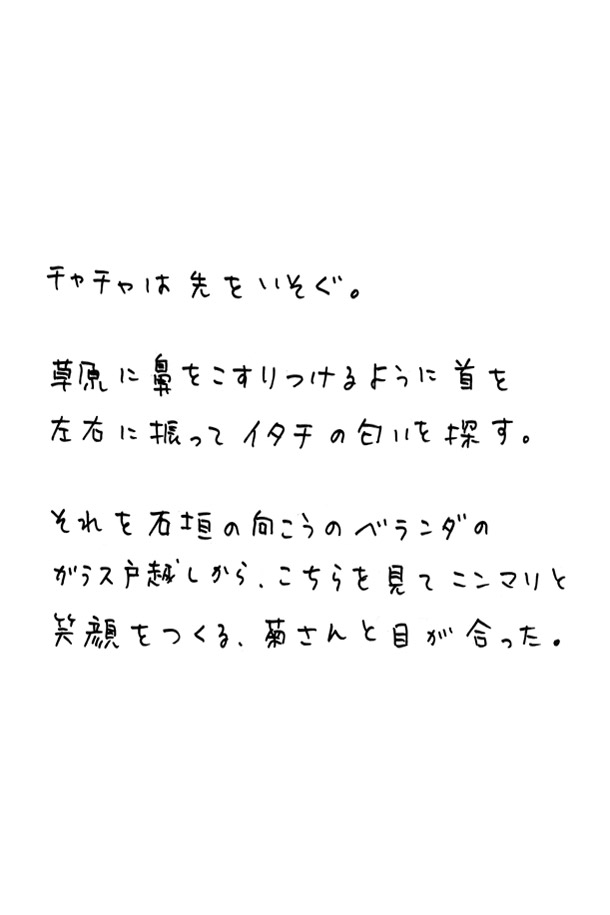 チャチャは先をいそぐ。
草原に鼻をこすりつけるように首を
左右に振ってイタチの匂いを探す。
それを石垣の向こうのベランダの
がラス戸越しから、こちらを見てニンマリと
笑顔をつくる、菊さんと目が合った。